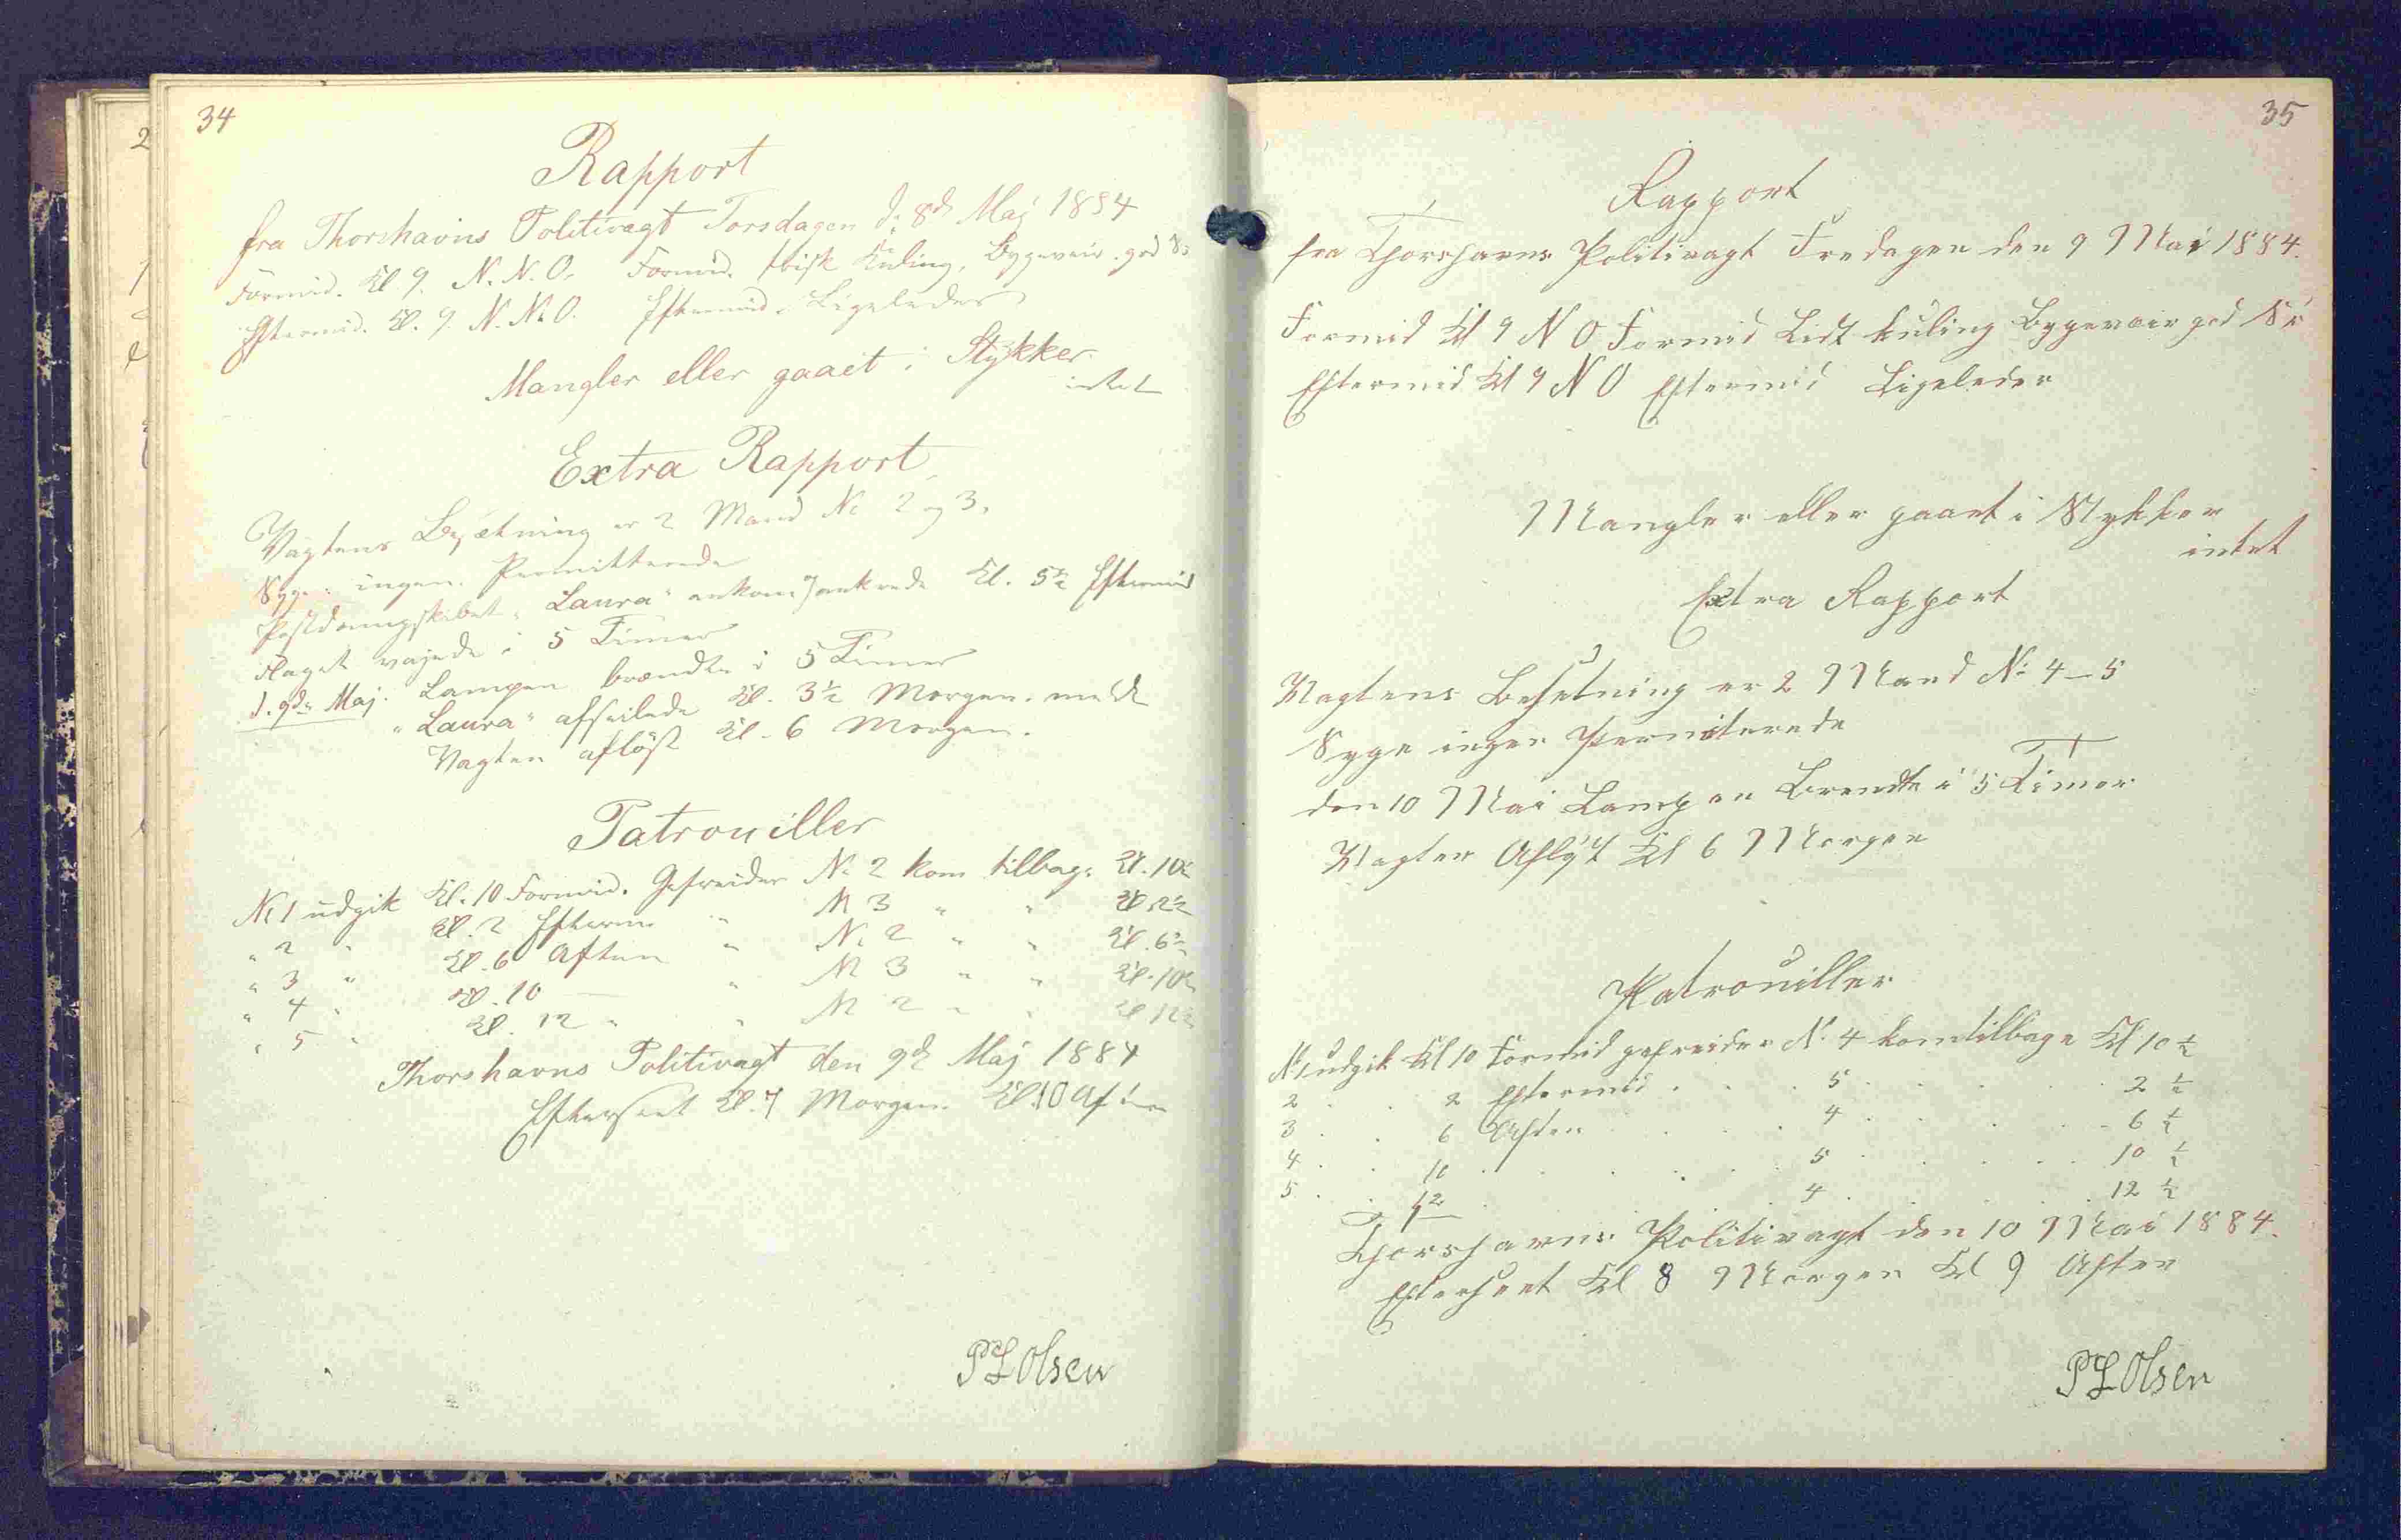 34
Rapport
fra Thorshavns Politivagt Torsdagen d: 8de Maj 1884
Formid. Kl. 9. N. N. O. Formid. frisk Kuling, Bygeveir. god S:
Eftermid. Kl. 9. N. N. O. Eftermid. Ligeledes
Mangler eller gaaet i Stykker
intet
Extra Rapport
Vagtens Besætning er 2 Mand No 2 og 3.
Syge: ingen. Permitterede
Postdampskibet "Laura" ankom Kl. 5½ Eftermid
Flaget vajede i 5 Timer
d. 9de Maj. Lampen brændte i 5 Timer
"Laura" afseilede Kl. 3½ Morgen.
Vagten aflöst Kl. 6 Morgen.
Patrouiller
No 1 udgik Kl. 10 Formid. Gefreider No 2 kom tilbage Kl. 10½
" 2 " Kl. 2 Efterm " No 3 " " Kl. 2½
" 3 " Kl. 6 Aften " No 2 " " Kl. 6½
" 4 " Kl. 10 — " No 3 " " Kl. 10½
" 5 " Kl. 12 " " No 2 " " Kl 12½
Thorshavns Politivagt den 9de Maj 1884
Efterseet Kl. 7 Morgen. Kl. 10 Aften
P L Olsen
35
Rapport
fra Thorshavns Politivagt Fredagen den 9 Mai 1884.
Formid Kl 9 N O Formid Lidt kuling Bygevair god S:
Eftermid Kl 9 N O Eftermid Ligeledes
Mangler eller gaaet i Stykker
intet
Extra Rapport
Vagtens Besetning er 2 Mand No 4 – 5
Syge ingen Permiterede
den 10 Mai Lampen Brendte i 5 Timer
Vagten Afløst Kl 6 Morgen
Patrouiller
No 1 udgik Kl 10 Formid gefreider No 4 kom tilbage Kl 10 ½
2 . . 2 Eftermid . . . 5 . . . 2 ½
3 . . 6 Aften . . . 4 . . . 6 ½
4 . . 10 . . . 5 . . . 10 ½
5 . . 12 . . . 4 . . . 12 ½
Thorshavns Politivagt den 10 Mai 1884.
Efterseet Kl 8 Morgen Kl 9 Aften
P L Olsen